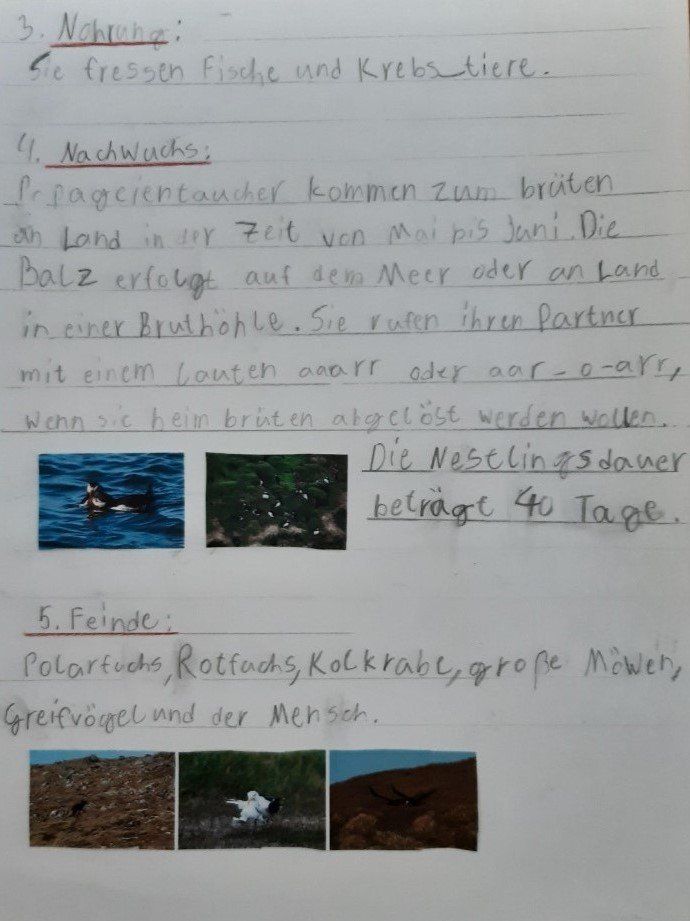 3. Nahrung:
Sie fressen Fische und Krebstiere.
4. Nachwuchs:
Papageientaucher kommen zum brüten
an Land in der Zeit von Mai bis Juni. Die
Balz erfolgt auf dem Meer oder an Land
in einer Bruthöhle. Sie rufen ihren Partner
mit einem lauten aaarr oder aar-o-arr,
wenn sie beim brüten abgelöst werden wollen.
Die Nestlingsdauer
beträgt 40 Tage.
5. Feinde:
Polarfuchs, Rotfuchs, Kolkrabe, große Möwen,
Greifvögel und der Mensch.